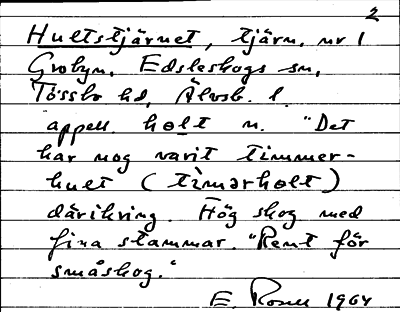 2
Hultstjärnet, tjärn, nr 1
Grobyn, Edsleskogs sn,
Tössbo hd, Älvsb. l.
appell. holt n. "Det
har nog varit timmer-
hult (tìmərholt)
däríkring. Hög skog med
fina stammar. "Rent för
småskog."
E. Rosen 1964